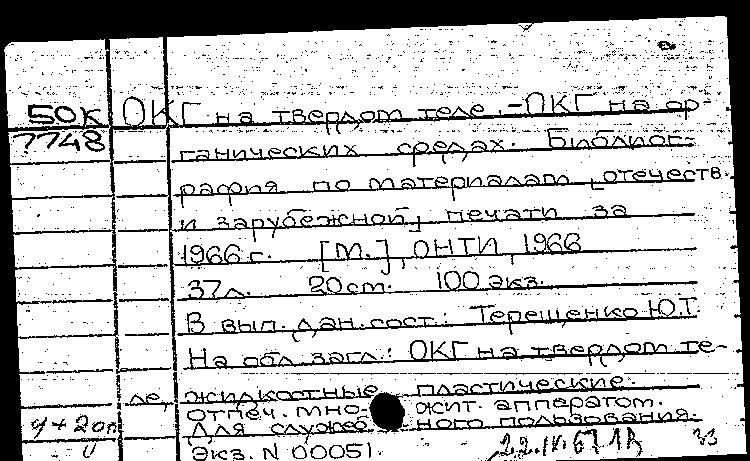 50К ОКГ на твердом теле. - ОКГ на ор-
7748 ганических средах. Библиог-
рафия по материалам [отечеств.
и зарубежной] печати за
1966 г. [М.], ОНТИ, 1966
37 л. 20 см. 100 экз.
В вып. дан. сост.: Терещенко Ю.Т.
На обл. загл.: ОКГ на твердом те-
ле, жидкостные пластические.
Отпеч. мно- жит. аппаратом.
Для служеб ного пользования.
Экз. N 00051. 22.IV.67 33